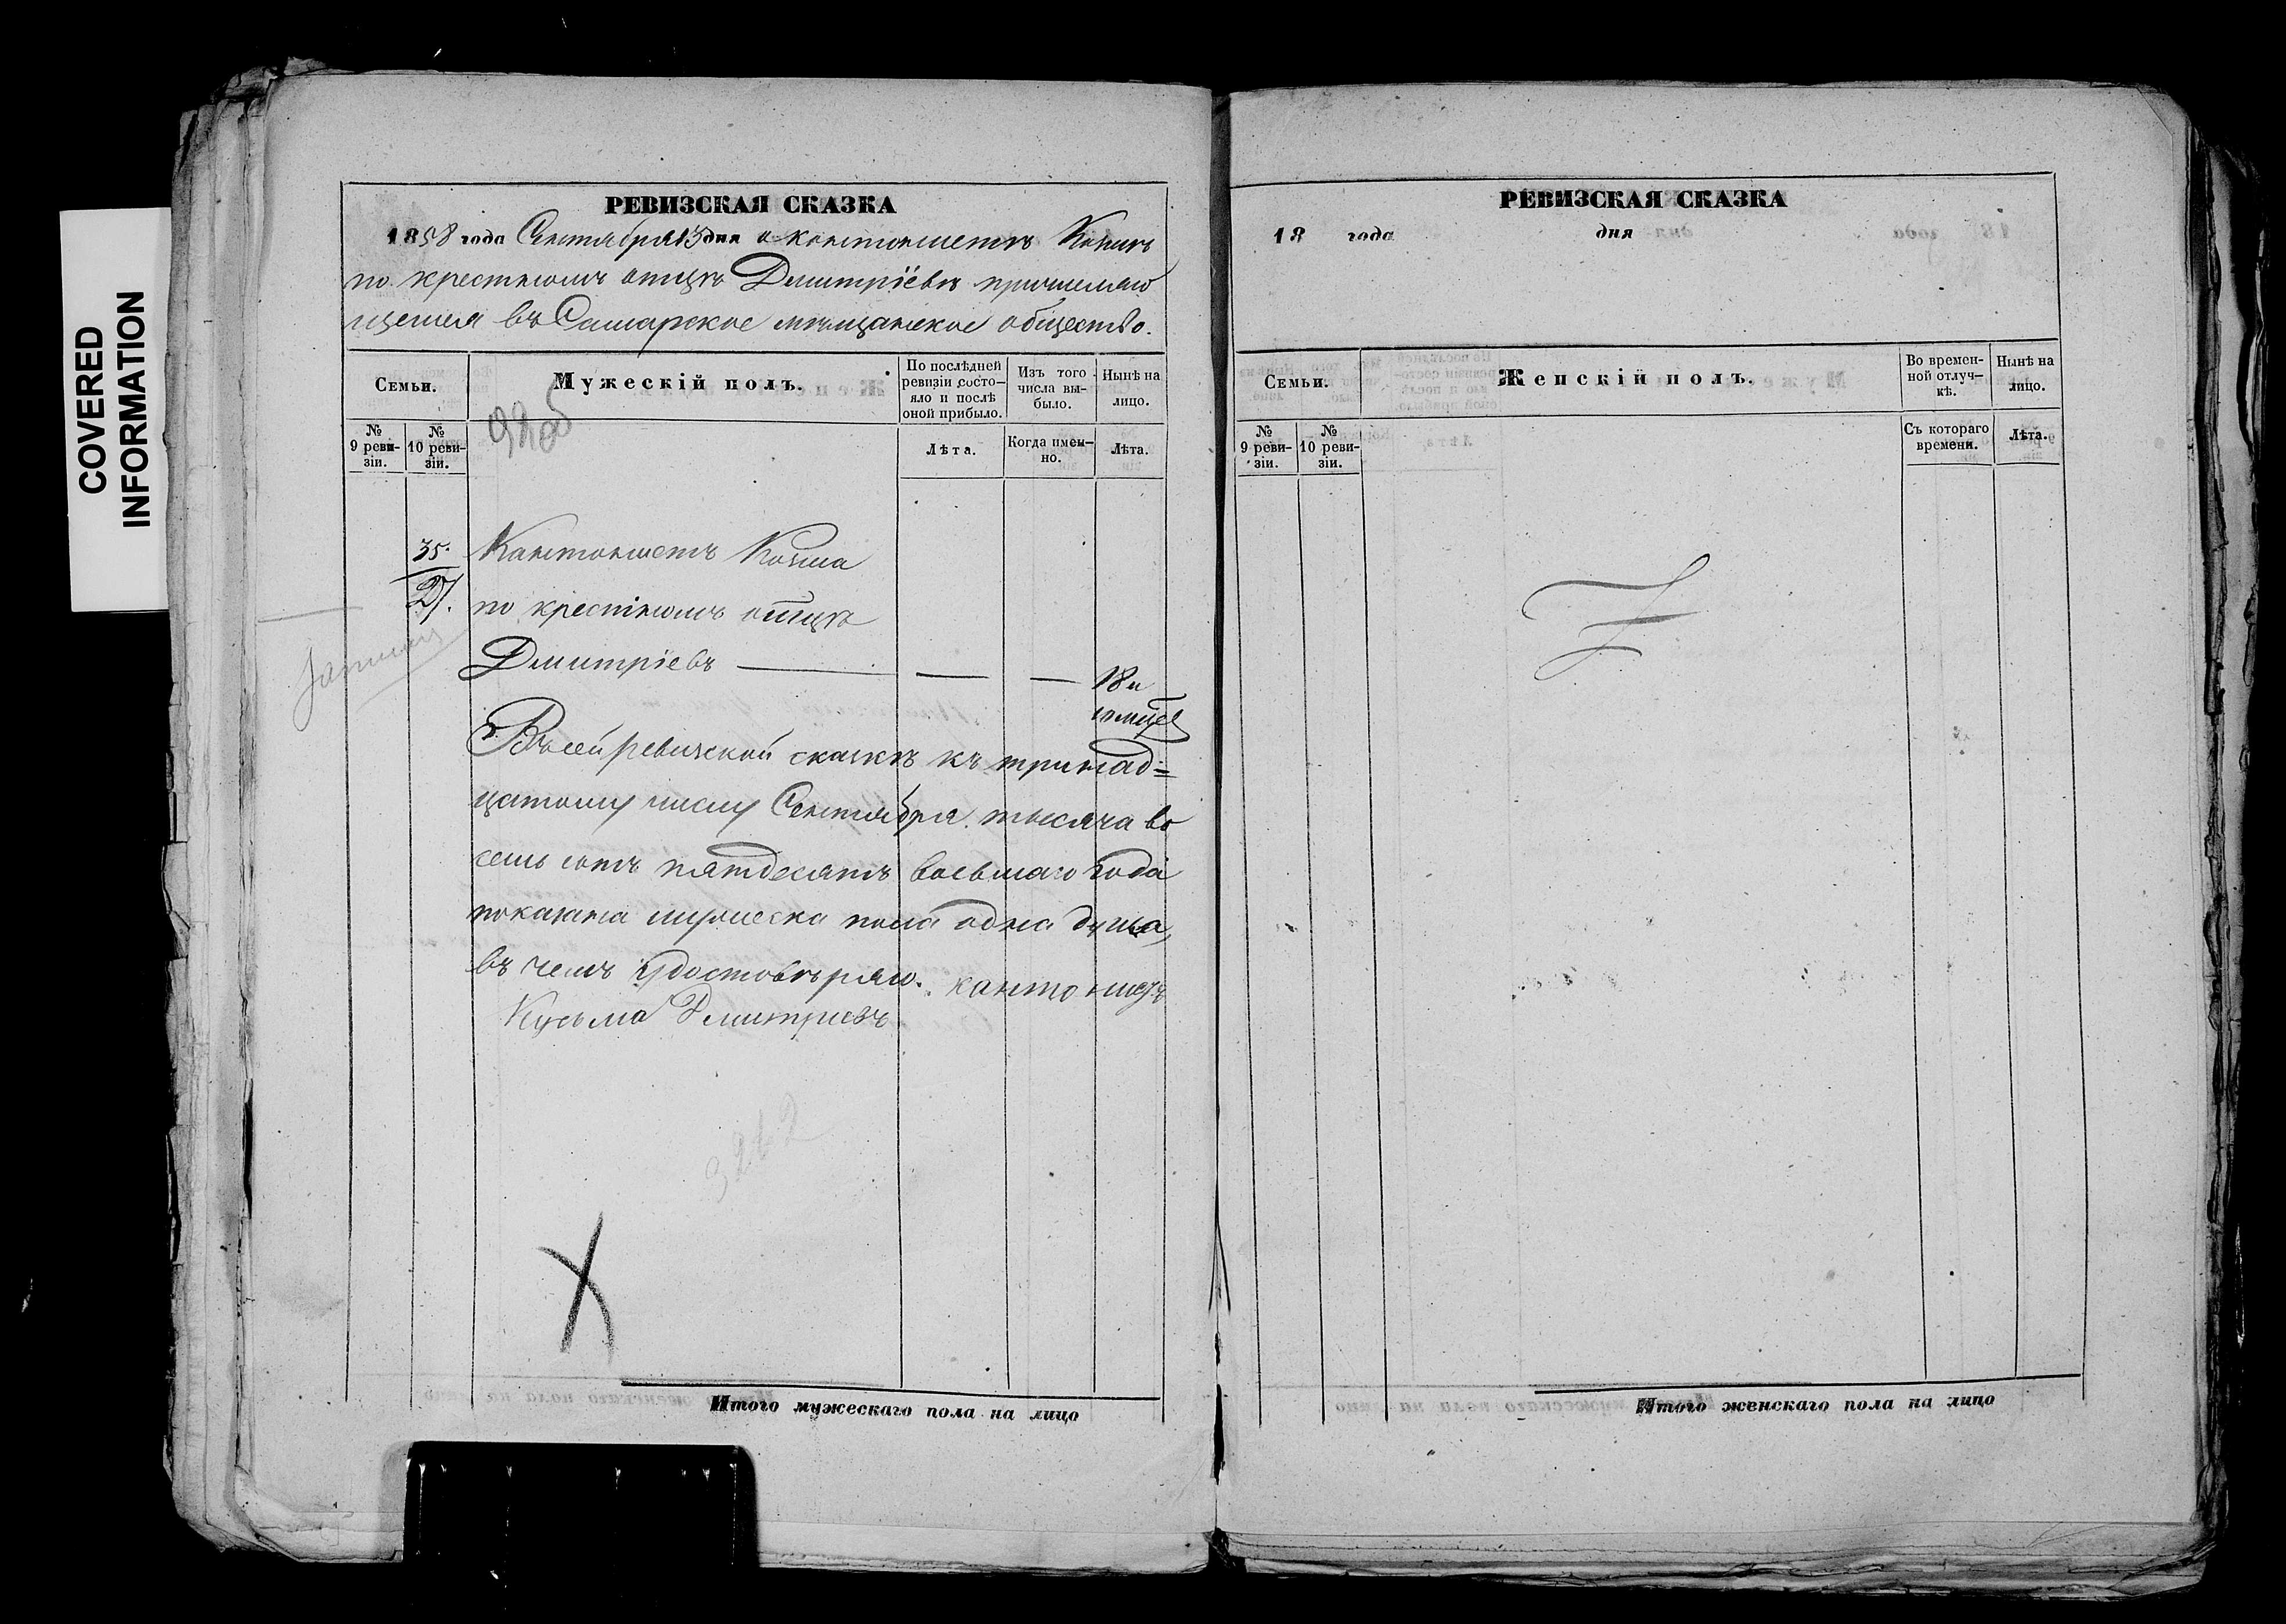 COVERED
INFORMATION
РЕВИЗСКАЯ СКАЗКА
1858 года Сентября 13 дня о кантонистѣ Козмѣ
по крестномъ отцѣ Дмитріевѣ причисляю
щемся въ Самарское мѣщанское общество.
Семьи.
Мужескій полъ.
По послѣдней ревизіи состо-яло и послѣ оной прибыло.
Изъ того числа вы-было.
Нынѣ на лицо.
№ 9 реви-зіи.
№ 10 реви-зіи.
Лѣта.
Когда имен-но.
Лѣта.
35.
27.
Кантонистъ Козма
по крестномъ отцѣ
Дмитріевъ — — — 18 и
10 мцев
Въ сей ревизской сказкѣ къ тринад=
цатому числу Сентября тысяча во
семь сотъ пятдесятъ восьмаго года
показана мужеска пола одна душа,
въ чемъ удостовѣряю. кантонистъ
Кузьма Дмитриевъ
3262
Итого мужескаго пола на лицо
РЕВИЗСКАЯ СКАЗКА
18 года дня
Семьи.
Женскій полъ.
Во времен-ной отлуч-кѣ.
Нынѣ на лицо.
№ 9 реви-зіи.
№ 10 реви-зіи.
Съ котораго времени.
Лѣта.
Итого женскаго пола на лицо